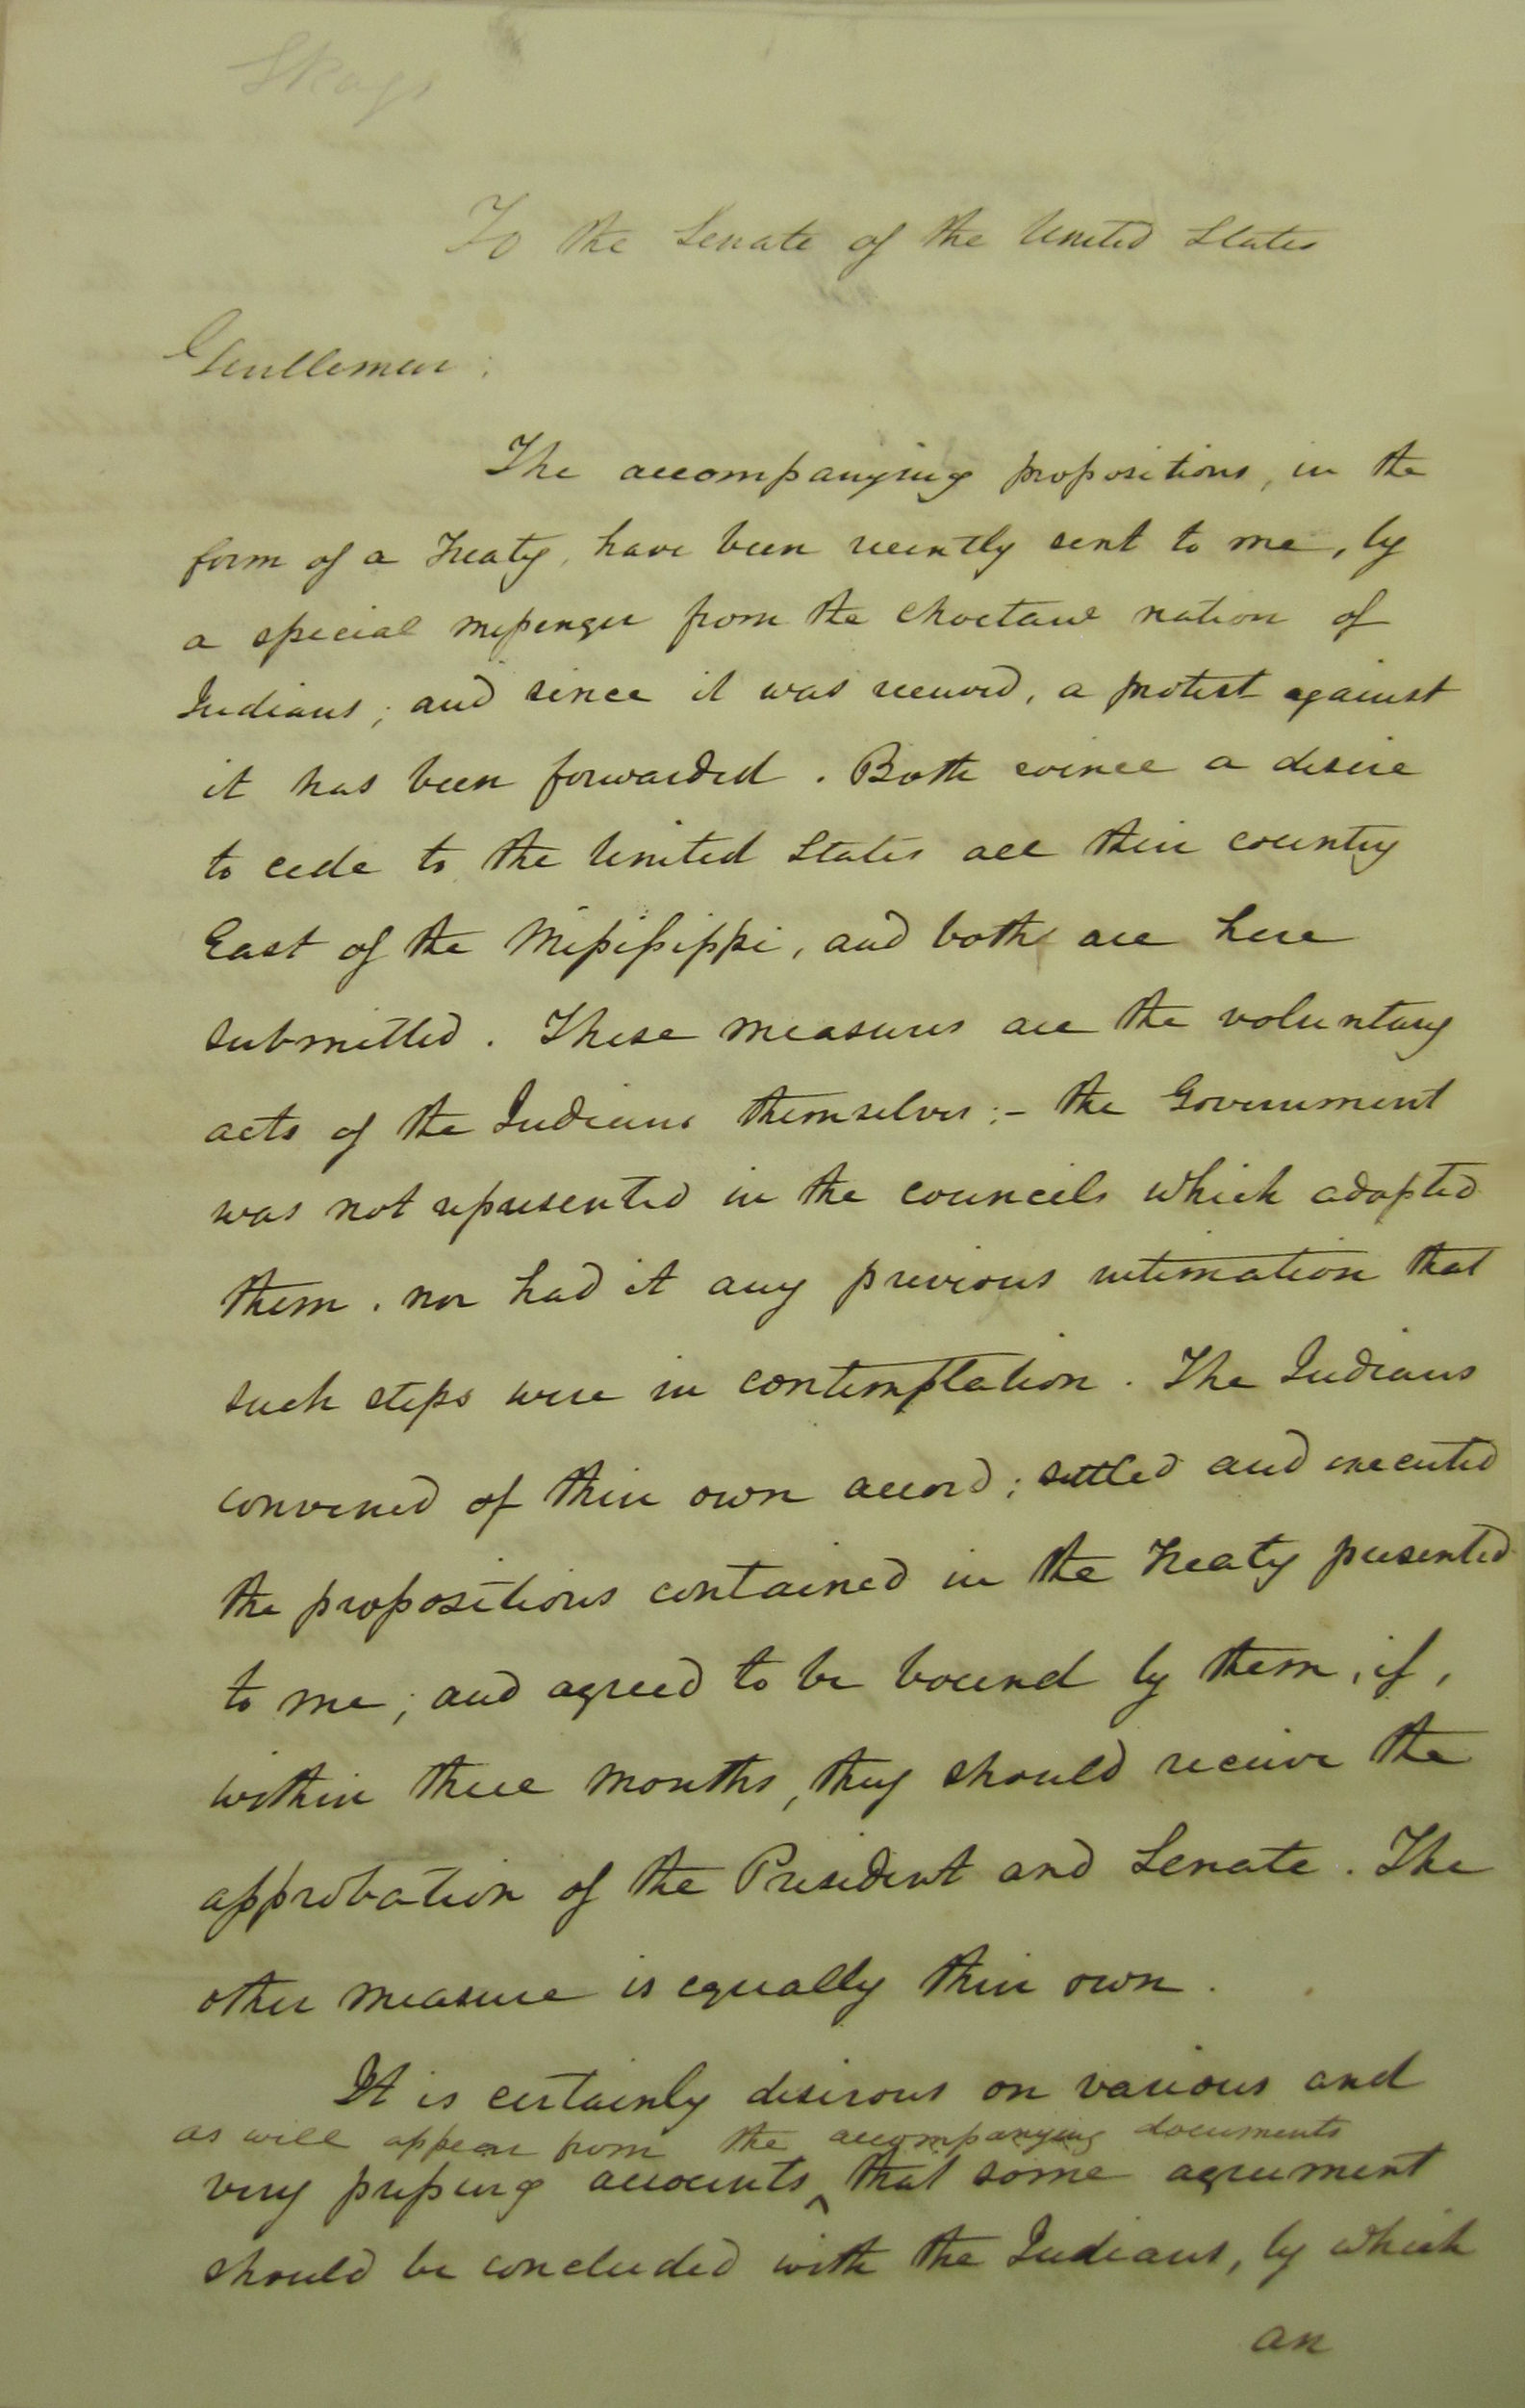 To the Senate of the United States
Gentlemen:
The accompanying propositions, in the
form of a Treaty, have been recently sent to me, by
a special messenger from the Choctaw nation of
Indians; and since it was received, a protest against
it has been forwarded. Both evince a desire
to cede to the United States all their country
East of the Mississippi, and both are here
submitted. These measures are the voluntary
acts of the Indians themselves:- the Government
was not represented in the councils which adopted
them, nor had it any previous intimation that
such steps were in contemplation. The Indians
convened of their own accord; settled and executed
the propositions contained in the Treaty presented
to me; and agreed to be bound by them, if,
within three months, they should receive the
approbation of the President and Senate. The
other measure is equally their own.
It is certainly desirous on various and
as will appear from the accompanying documents
very pressing accounts, that some agreement
should be concluded with the Indians, by which
an